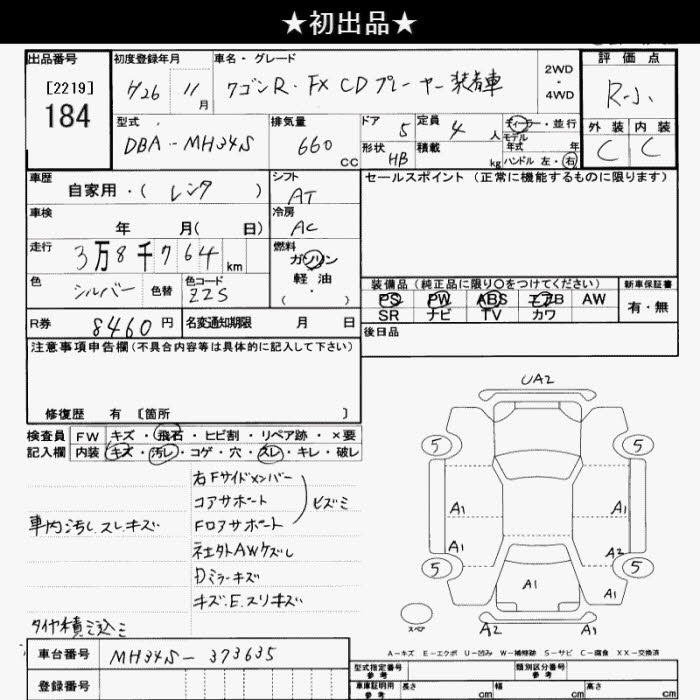 ★初出品★
出品番号
[2219]
184
初度登録年月
H26 11月
車名・グレード
ワゴンR・FX CDプレーヤー装着車
2WD
・
4WD
評価点
R-小
外装 内装
C C
型式
DBA-MH34S
排気量
660 cc
ドア 5
定員 4 人
形状 HB
積載 kg
ディーラー・並行
モデル
年式 年
ハンドル 左・右
車歴
自家用・( レンタ )
シフト
AT
セールスポイント (正常に機能するものに限ります)
車検
年 月( 日)
冷房
AC
走行
3万8千764 km
燃料
ガソリン
軽油
( ・ )
色
シルバー 色替
色コード
Z2S
装備品 (純正品に限り○をつけてください)
新車保証書
PS PW ABS エアB AW
SR ナビ TV カワ
有・無
R券 8460 円
名変通知期限 月 日
後日品
注意事項申告欄(不具合内容等は具体的に記入して下さい)
修復歴 有 [箇所 ]
検査員
記入欄
FW キズ・飛石・ヒビ割・リペア跡・×要
内装 キズ・汚レ・コゲ・穴・スレ・キレ・破レ
右Fサイドメンバー
コアサポート
Fロアサポート
ヒズミ
車内汚し.スレ.キズ
社外AWケズレ
Dミラーキズ
キズ.E.スリキズ
タイヤ積ミ込ミ
UA2
5 5
A1 A1
A1 A3
5 5
A1
スペア
A2 A1
A-キズ E-エクボ U-凹み W-補修跡 S-サビ C-腐食 XX-交換済
車台番号
MH34S-373635
登録番号
型式指定番号
参考
類別区分番号
参考
車庫証明用
参考
長さ cm
幅 cm
高さ cm